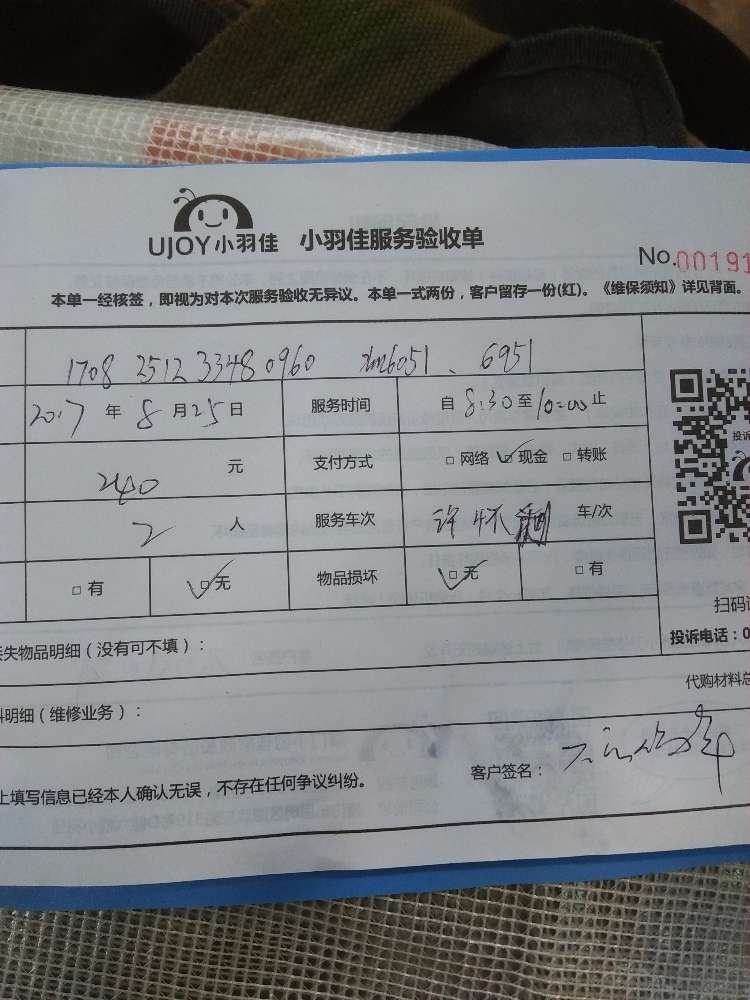 UJOY小羽佳 小羽佳服务验收单
No.00191
本单一经核签，即视为对本次服务验收无异议。本单一式两份，客户留存一份(红)。《维保须知》详见背面。
1708 2512 3348 0960 xm6051、6951
2017年8月25日 服务时间 自8:30至10:00止
240元 支付方式 □网络 ☑现金 □转账
2人 服务车次 许怀 车/次
□有 ☑无 物品损坏 ☑无 □有
投诉
扫码
失物品明细（没有可不填）：
投诉电话：0
明细（维修业务）：
代购材料总
上填写信息已经本人确认无误，不存在任何争议纠纷。
客户签名：